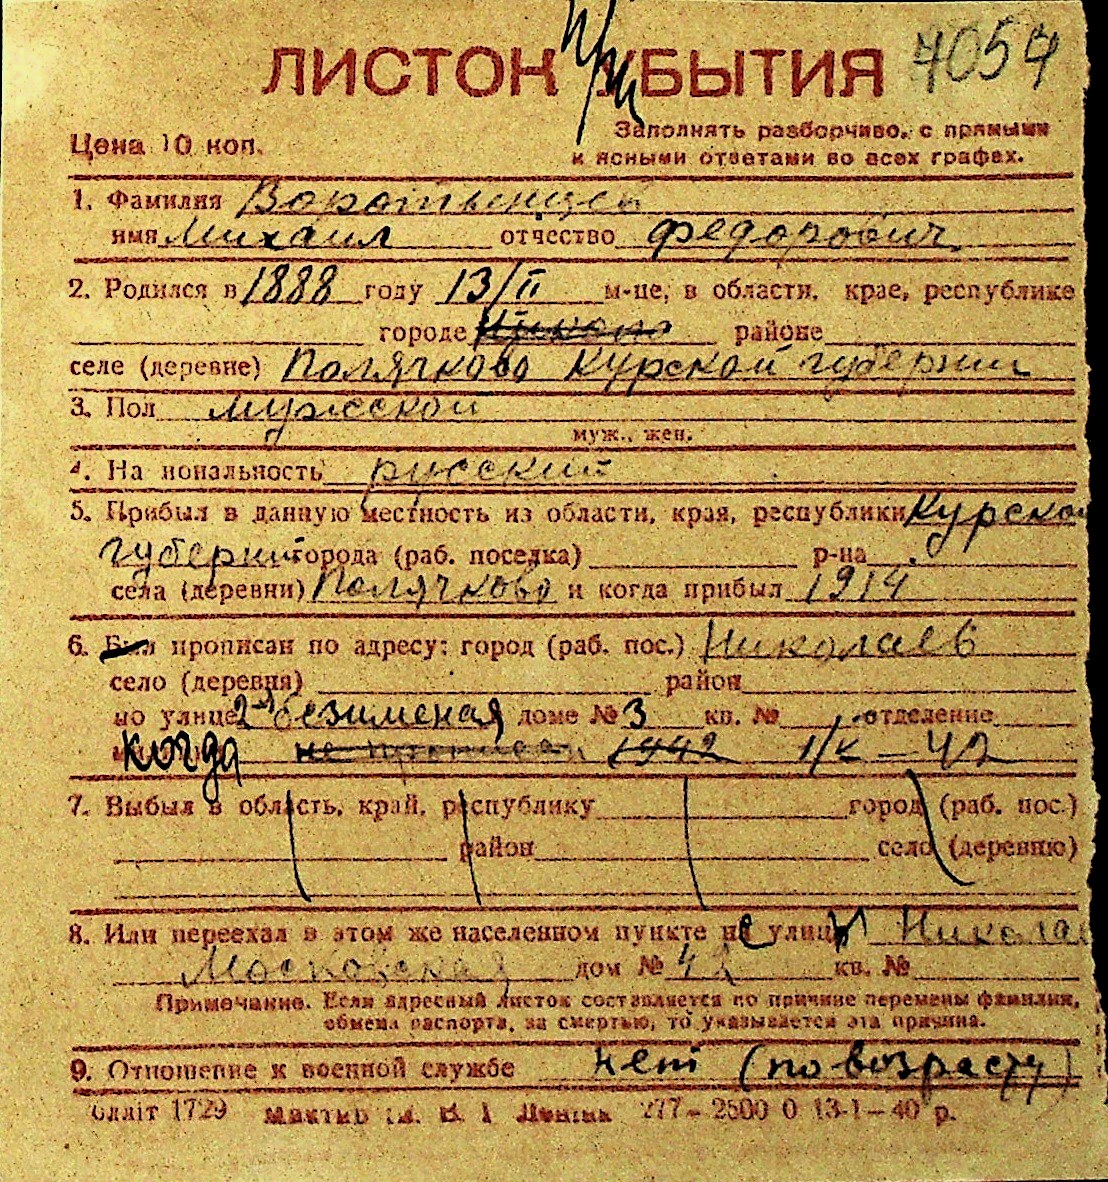 ЛИСТОК УБЫТИЯ 7057
Цена 10 коп.
Заполнять разборчиво, с прямыми
и ясными ответами во всех графах.
1. Фамилия Воротынцев
имя Михаил отчество Федорович
2. Родился в 1888 году 13/II м-це, в области, крае, республике
городе районе
селе (деревне) Полячково Курской губернии
3. Пол мужской
муж., жен.
4. На иональность русский
5. Прибыл в данную местность из области, края, республики Курской
губернии города (раб. поселка) р-на
села (деревни) Полячково и когда прибыл 1914
6. Был прописан по адресу: город (раб. пос.) Николаев
село (деревня) район
по улице 2-я безименая доме № 3 кв. № отделение
когда не прописан 1942 1/X – 42
7. Выбыл в область, край, республику город (раб. пос.)
район село (деревню)
8. Или переехал в этом же населенном пункте на улицу Никола
Московская дом № 42 кв. №
Примечание. Если адресный листок составляется по причине перемены фамилии,
обмена паспорта, за смертью, то указывается эта причина.
9. Отношение к военной службе нет (по возрасту)
блліт 1729 277–2500 0 13-1–40 р.